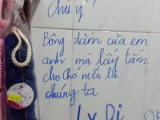 Chú ý!
Bông tắm của em
anh mà lấy tắm
cho chó nữa là
chúng ta
Ly Dị